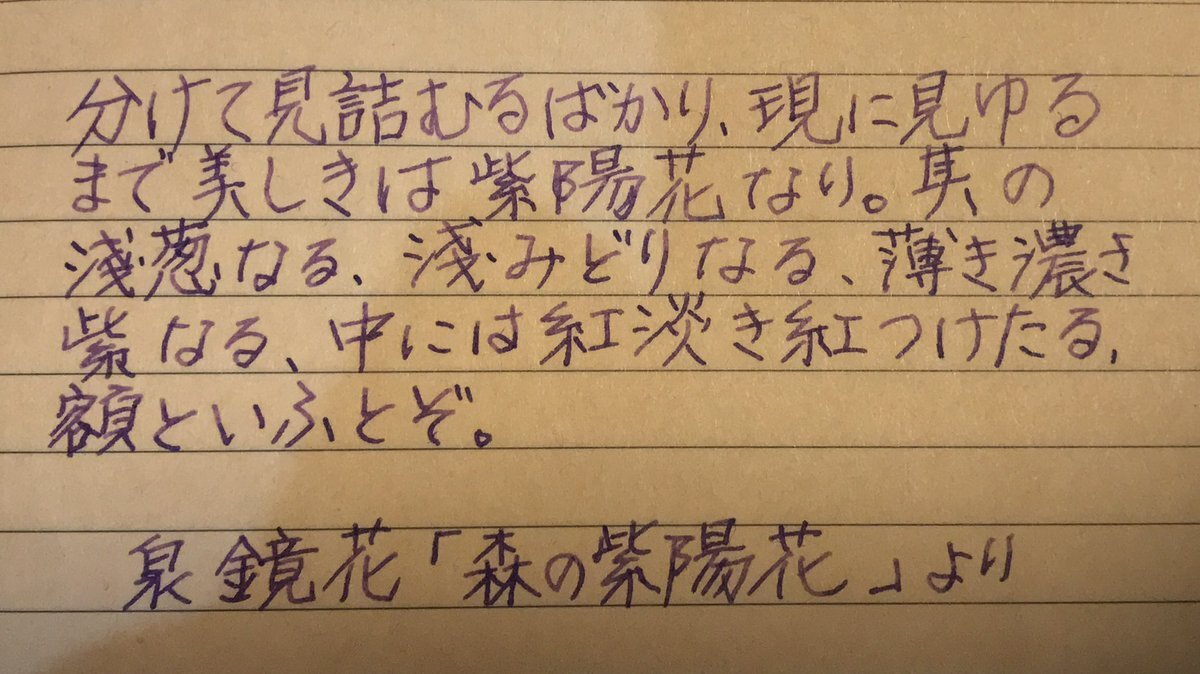 分けて見詰むるばかり、現に見ゆる
まで美しきは紫陽花なり。其の
淺葱なる、淺みどりなる、薄き濃き
紫なる、中には紅淡き紅つけたる、
額といふとぞ。
泉鏡花「森の紫陽花」より